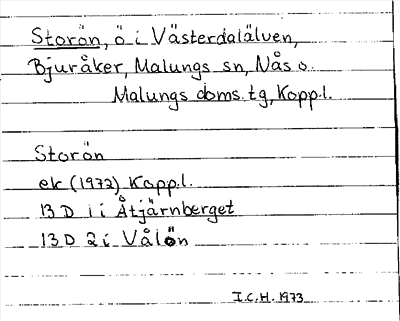 Storön, ö i Västerdalälven,
Bjuråker, Malungs sn, Nås o.
Malungs doms. tg, Kopp.l.
Storön
ek (1972) Kopp.l.
13 D 1 i Åtjärnberget
13 D 2 i Vålön
I.C.H. 1973